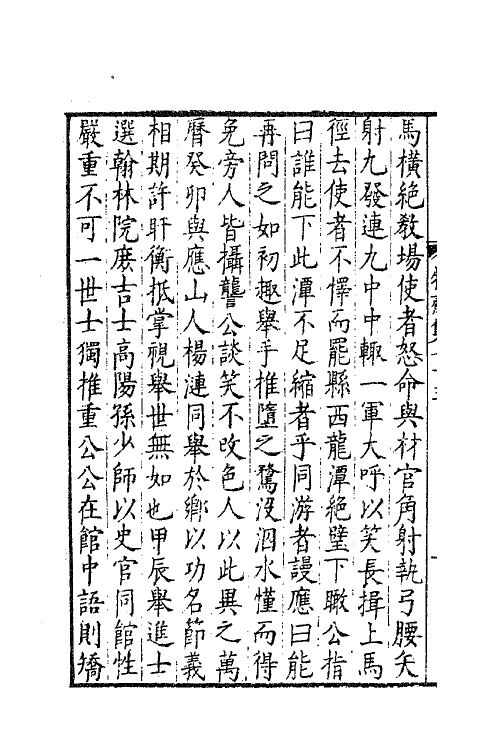 馬橫絶敎場使者怒命與材官角射執弓腰矢
射九發連九中中輙一軍大呼以笑長揖上馬
徑去使者不懌而罷縣西龍潭絶壁下瞰公指
曰誰能下此潭不足縮者乎同游者謾應曰能
再問之如初趣舉手推墮之驚没泅水僅而得
免旁人皆攝讋公談笑不改色人以此異之萬
曆癸卯與應山人楊漣同舉於鄉以功名節義
相期許盱衡抵掌視舉世無如也甲辰舉進士
選翰林院庶吉士高陽孫少師以史官同館性
嚴重不可一世士獨推重公公在館中語則撟